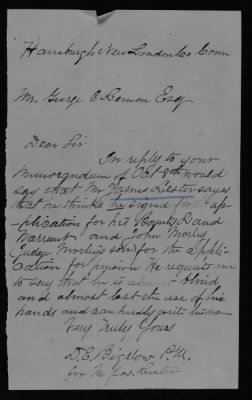 Hamburgh New London Co Conn
Mr. George C Lemon Esq
Dear Sir
In reply to your
Memorandum of Oct 8th would
say that Mr James Lester says
that he thinks he signed for ap-
plication for his Bounty Land
Warrent and John Morley
Judge Morlys son for the appli-
cation for pension He requests me
to very that he is almost blind
and almost lost the use of his
hands and can hardly write his name
Very Truly Yours
D. C. Bigelow P.M.
for Mr Jas. Lester